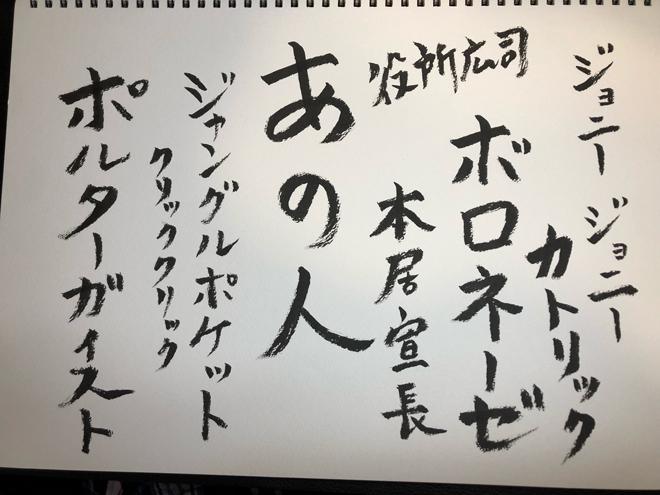 ジョニー ジョニー
カトリック
ボロネーゼ
役所広司
本居宣長
あの人
ジャングルポケット
クリッククリック
ポルターガイスト